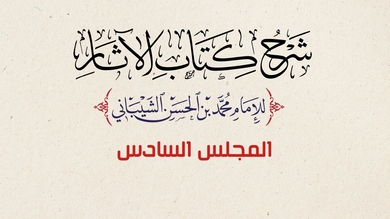 شَرْحُ كِتَابِ الآثَارِ
لِلإِمَامِ مُحَمَّدِ بْنِ الحَسَنِ الشَّيْبَانِي
المجلس السادس